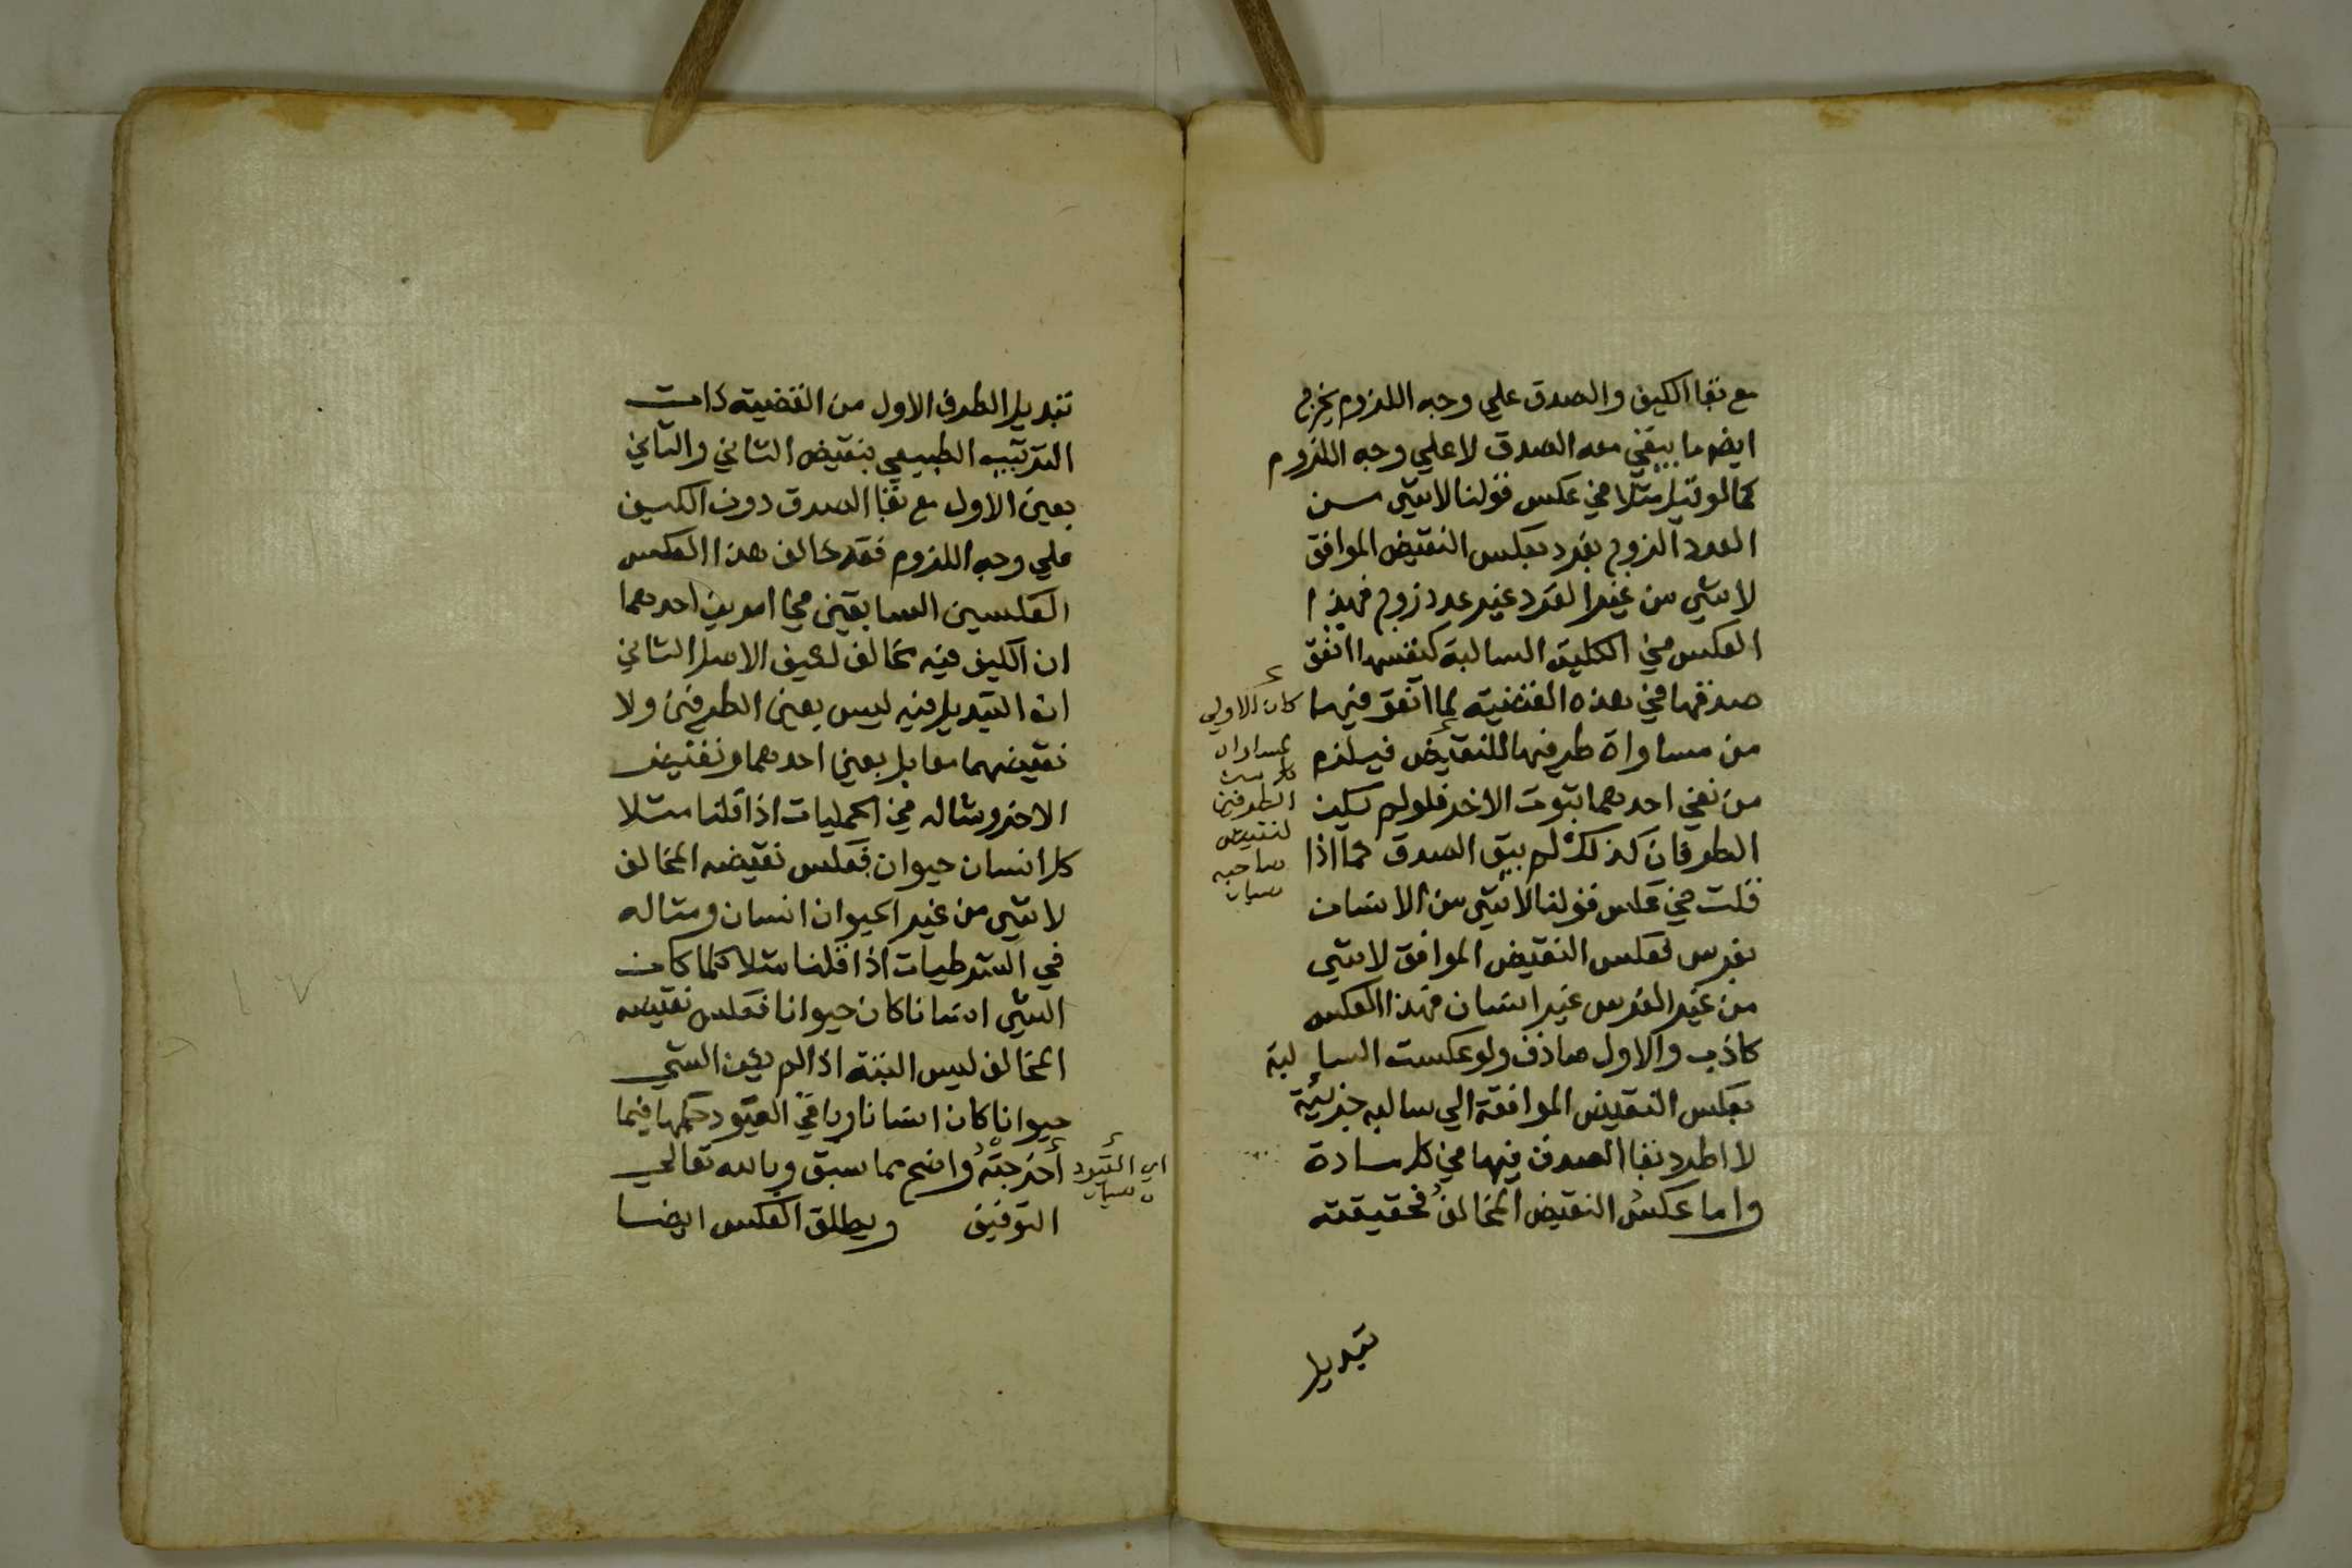 مع بقا الكيف والصدق علي وجه اللزوم يخرج
ايض ما يبقي معه الصدق لا علي وجه اللزوم
كما لو قيل مثلا في عكس قولنا لا شي من
العدد الزوج بفرد بعكس النقيض الموافق
لا شي من غير الفرد غير عدد زوج فهذا
العكس في الكلية السالبة كنفسها اتفق
صدقها في هذه القضية لما اتفق فيها
من مساواة طرفيها للنقيض فيلزم
من نفي احدهما ثبوت الاخر فلو لم يكن
الطرفان كذلك لم يبق الصدق كما اذا
قلت في عكس قولنا لا شي من الانسان
بفرس بعكس النقيض الموافق لا شي
من غير الفرس غير انسان فهذا العكس
كاذب والاول صادق ولو عكست السالبة
بعكس النقيض الموافقة الي سالبه جزئية
لا اطرد بقا الصدق فيها في كل مادة
واما عكس النقيض المخالف فحقيقته
كان الاولي
لمساواة
كل من
الطرفين
لنقيض
صاحبه
تبديل
تبديل الطرف الاول من القضية ذات
الترتيب الطبيعي بنقيض الثاني والثاني
بعين الاول مع بقا الصدق دون الكيف
علي وجه اللزوم فقد خالف هذا العكس
العكسين السابقين في امرين احدهما
ان الكيف فيه مخالف لكيف الاصل الثاني
ان التبديل فيه ليس بعين الطرفين ولا
نقيضهما معا بل بعين احدهما ونقيض
الاخر ومثاله في الحمليات اذا قلنا مثلا
كل انسان حيوان فعكس نقيضه المخالف
لا شي من غير الحيوان انسان ومثاله
في الشرطيات اذا قلنا مثلا كلما كان
الشي انسانا كان حيوانا فعكس نقيضه
المخالف ليس البتة اذا لم يكن الشي
حيوانا كان انسانا وباقي القيود حكمها فيما
أخرجته واضح مما سبق وبالله تعالي
التوفيق ويطلق العكس ايضا
اي القيود